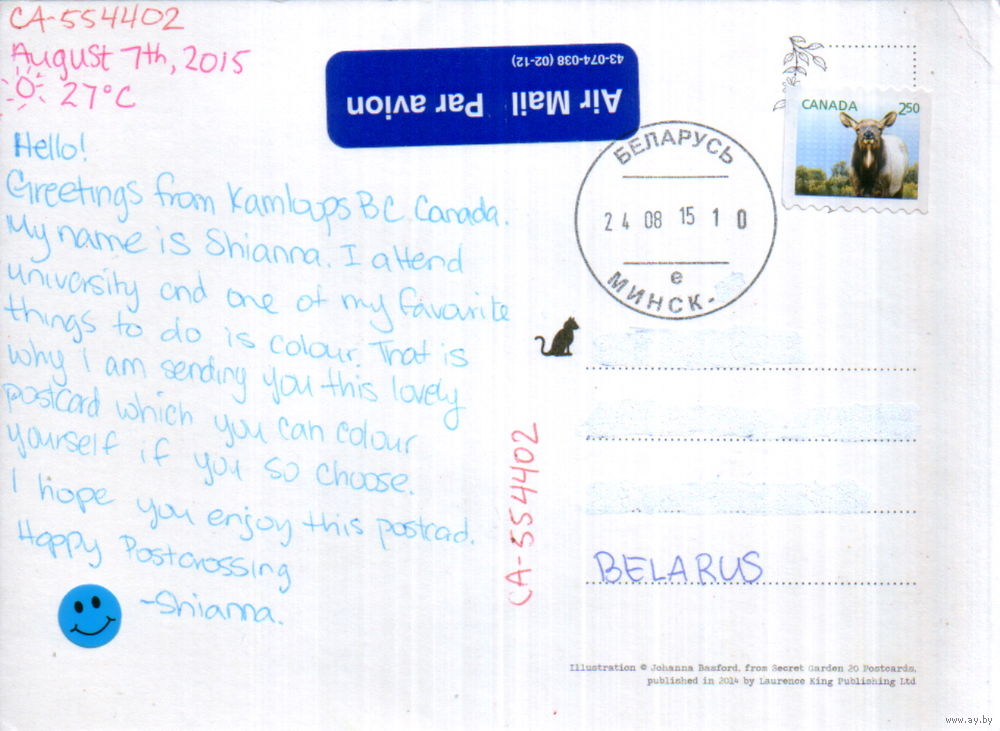 CA-554402
August 7th, 2015
27°C
Hello!
Greetings from Kamloups BC Canada.
My name is Shianna. I attend
university and one of my favourite
things to do is colour. That is
why I am sending you this lovely
postcard which you can colour
yourself if you so choose.
I hope you enjoy this postcad.
Happy Postcrossing
-Shianna.
Air Mail Par avion
43-074-038 (02-12)
CANADA 250
БЕЛАРУСЬ
24 08 15 10
е
МИНСК-
CA-554402
BELARUS
Illustration © Johanna Basford, from Secret Garden 20 Postcards,
published in 2014 by Laurence King Publishing Ltd
www.ay.by